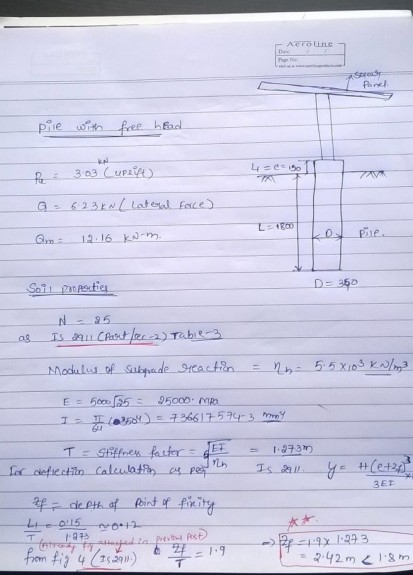 Aeroline
Date
Page No.
solar
Panel
Pile with free head
Pu = 3.03 kN (uplift)
L1 = e = 150
Q = 6.23 kN (Lateral Force)
L = 1800
D
Pile.
Qm = 12.16 kN-m.
D = 350
Soil properties
N = 25
as IS 2911 (Part/sec-2) Table-3
Modulus of subgrade reaction = ηh = 5.5 x 10³ kN/m³
E = 5000√25 = 25000. MPa
I = π/64 (350⁴) = 736617574.3 mm⁴
T = stiffness factor = ⁵√EI/ηh = 1.273m
For deflection calculation as per IS 2911. y = H(e+zf)³/3EI
zf = depth of point of fixity
L1/T = 0.15/1.273 ≈ 0.12
(Already fig attached in previous post)
from fig 4 (IS 2911. zf/T = 1.9
⇒ zf = 1.9 x 1.273
= 2.42m < 1.8m